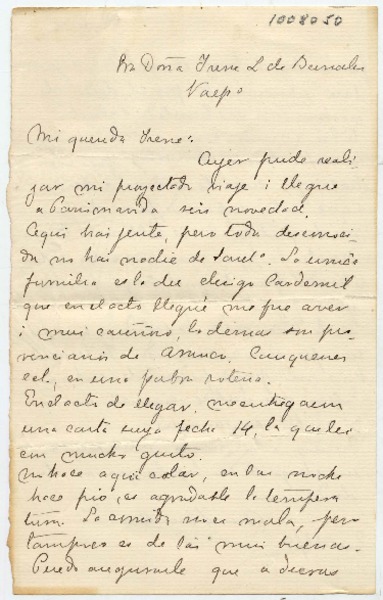 1008050
Sra Doña Irene L de Bunster
Valpo
Mi querida Irene:
Ayer pude reali
zar mi proyectado viaje i llegué
a Panimávida sin novedad.
Aqui hai jente, pero toda desconoci
da no hai nadie de Santo. La única
familia es la del amigo Cardemil
que en el acto llegué me fue a ver
i mui cariñoso, los demas son pro-
vincianos de Arauco, Cauquenes
ect, en una palabra
En el acto de llegar, me entregaron
una carta suya fecha 14, la que leí
con mucho gusto.
No hace aqui calor, en las noches
hace frio, es agradable la tempera
tura. La comida no es mala, pero
tampoco es de las mui buenas.
Puedo asegurarle que a